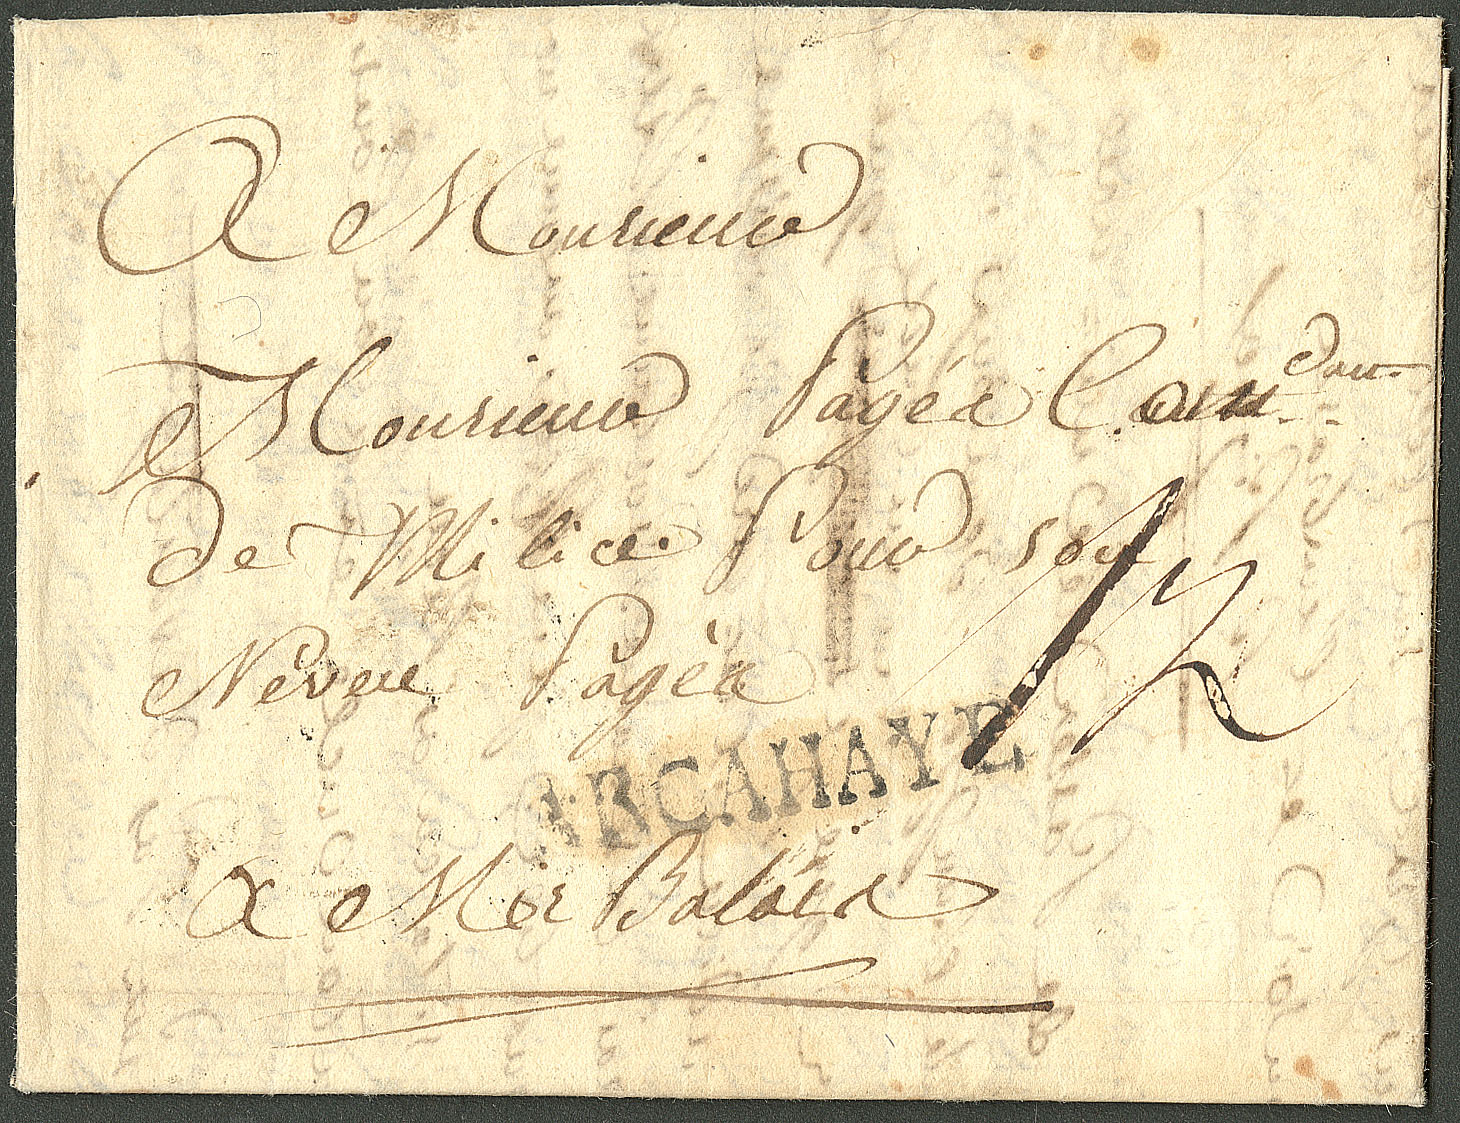 A Monsieur
Monsieur Pagéx Com dan
de Milice Pour son
Néveu Pagèx
12
ARCAHAYE
a Mirbalaix